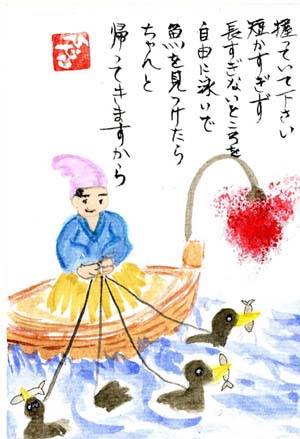 握っていて下さい
短かすぎず
長すぎないところを
自由に泳いで
魚を見つけたら
ちゃんと
帰ってきますから